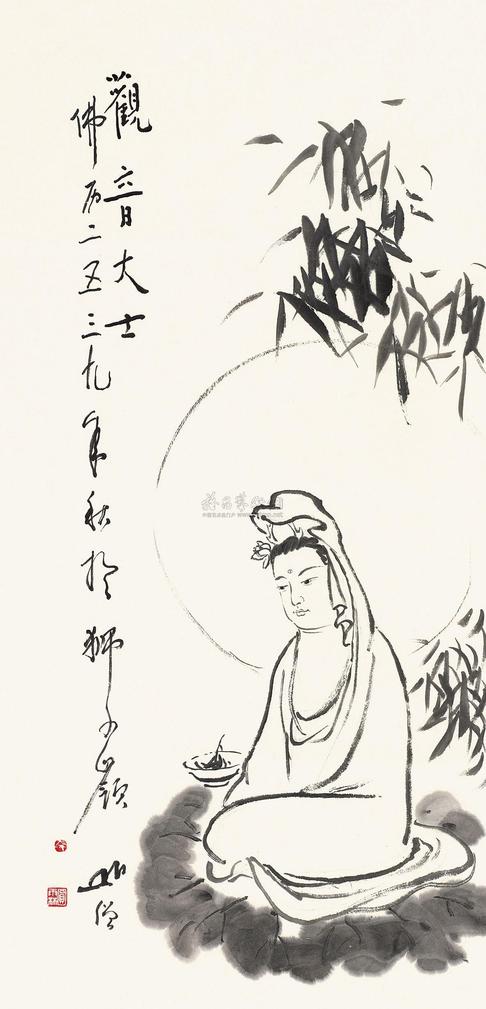 觀音大士
佛历二五三九年秋於獅子嶺
僧